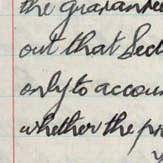 the guarantee
out that Sec
only to accou
whether the pr